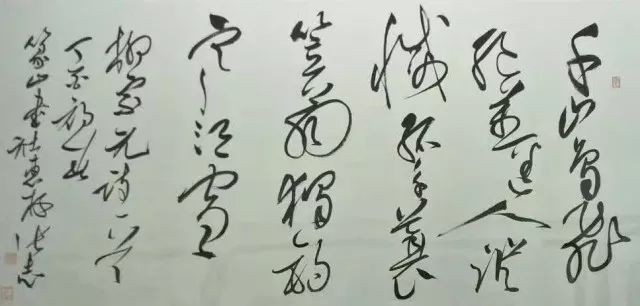 千山鳥飛
絕萬徑人蹤
滅孤舟蓑
笠翁獨釣
寒江雪
柳宗元詩一首
丁酉初
山書社惠存